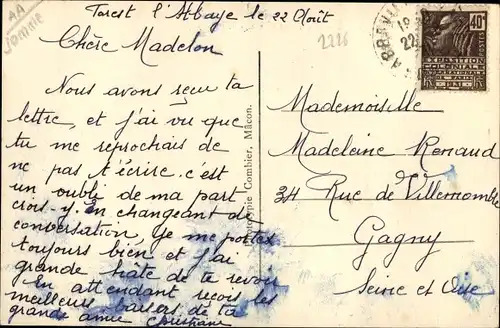 AA
somme
Forest l'Abbaye le 22 Août
Chère Madelon
2226
Nous avons reçu ta
lettre, et j'ai vu que
tu me reprochais de
ne pas t'écrire. c'est
un oubli de ma part
crois-y. En changeant de
conversation Je me portes
toujours bien et j'ai
grande hâte de te revoir
En attendant recois les
meilleurs baisers de ta
grande amie Christiane
Combier, Mâcon.
40
POSTES
EXPOSITION
COLONIALE
INTERNATIONALE
PARIS
1931
Mademoiselle
Madeleine Renaud
34 Rue de Villemomble
Gagny
Seine et Oise